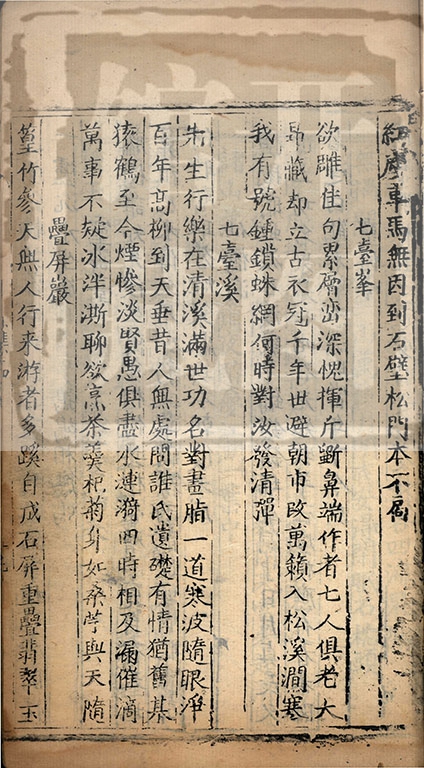 紅塵車馬無因到石壁松門本不扃
七臺峯
欲雕佳句累層巒深愧揮斤斲鼻端作者七人俱老大
昂藏却立古衣冠千年世避朝市改萬籟入松溪澗寒
我有號鍾鎖蛛網何時對汝發清彈
七臺溪
先生行樂在清溪滿世功名對畫脂一道寒波隨眼淨
百年髙柳到天垂昔人無處問誰氏遺礎有情猶舊基
猿鶴至今煙慘淡賢愚俱盡水漣漪四時相及漏催滴
萬事不疑冰泮澌聊欲烹茶羹杞菊身如桑苧與天隨
疊屏巖
篁竹參天無人行来游者多蹊自成石屏重疊翡翠玉